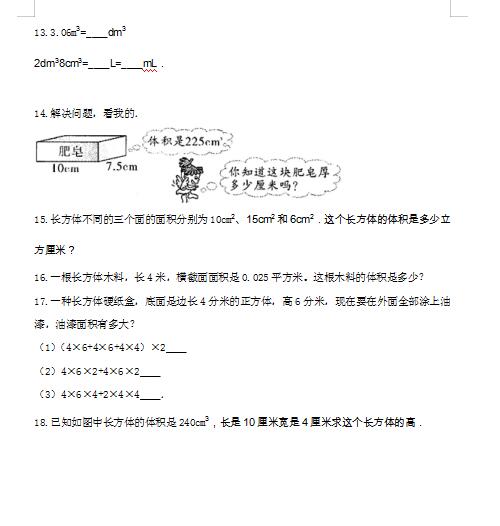 13.3.06m³=____dm³
2dm³8cm³=____L=____mL.
14.解决问题，看我的.
体积是225cm³
肥皂
10cm
7.5cm
你知道这块肥皂厚
多少厘米吗?
15.长方体不同的三个面的面积分别为10cm²、15cm²和6cm².这个长方体的体积是多少立
方厘米?
16.一根长方体木料，长4米，横截面面积是0.025平方米。这根木料的体积是多少?
17.一种长方体硬纸盒，底面是边长4分米的正方体，高6分米，现在要在外面全部涂上油
漆，油漆面积有多大?
（1）（4×6+4×6+4×4）×2____
（2）4×6×2+4×6×2____
（3）4×6×4+2×4×4____.
18.已知如图中长方体的体积是240cm³，长是10厘米宽是4厘米求这个长方体的高.